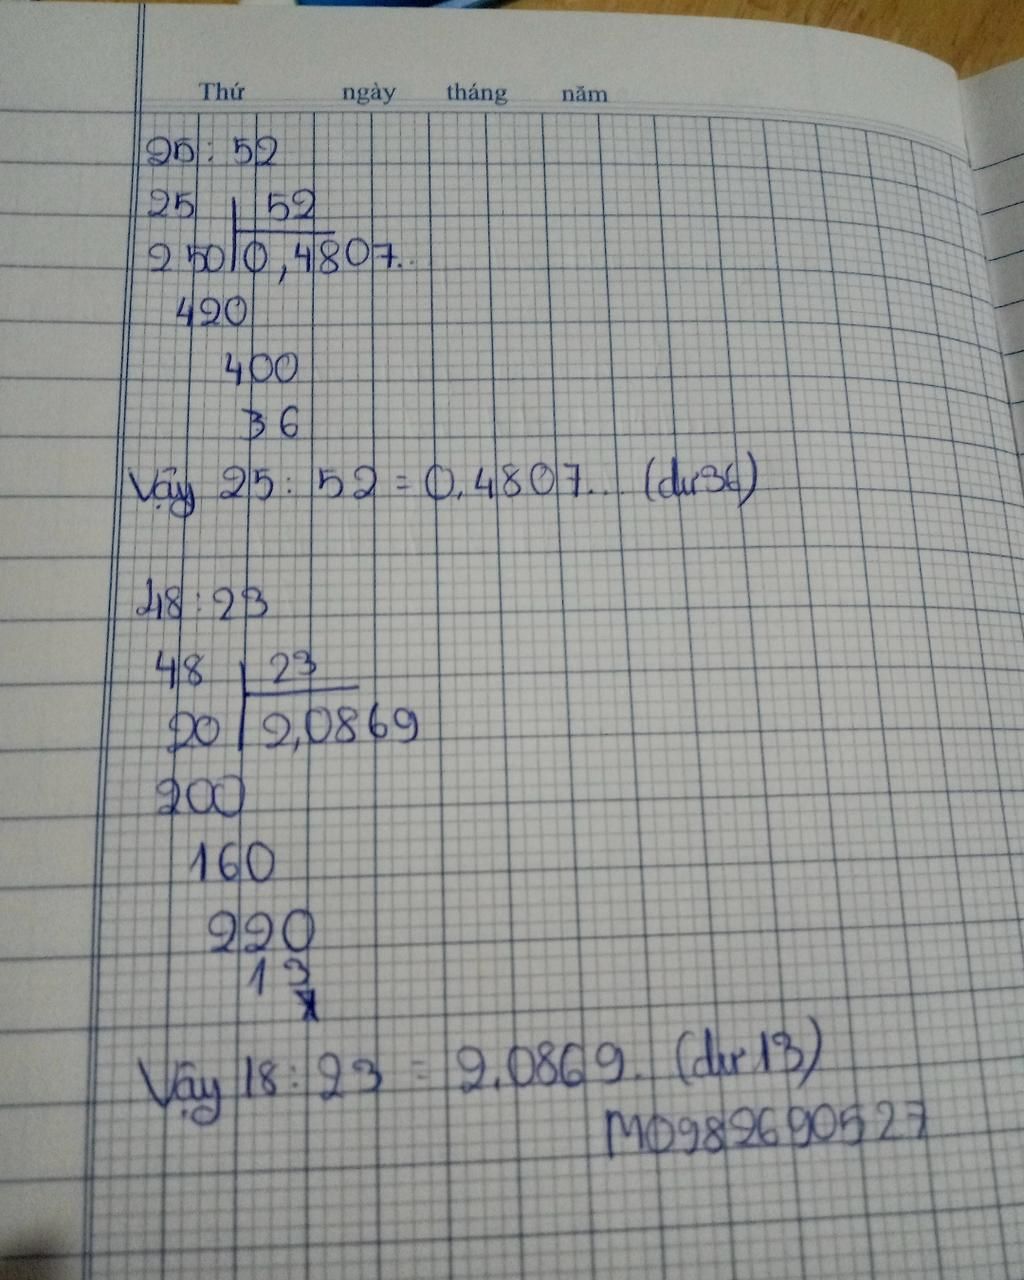 Thứ ngày tháng năm
25 : 52
25 52
250 0,4807..
420
400
36
Vậy 25 : 52 = 0,4807... (dư 36)
48 : 23
48 23
20 2,0869
200
160
220
13
Vậy 18 : 23 = 2,0869. (dư 13)
M0982690527